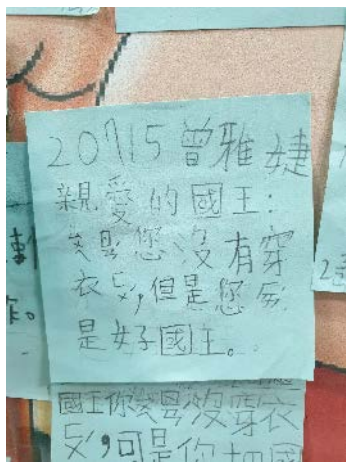 20715曾雅婕
親愛的國王:
您沒有穿
衣ㄈㄨˊ,但是您
是好國王。
國王你沒穿衣
ㄈㄨˊ,可是你把國